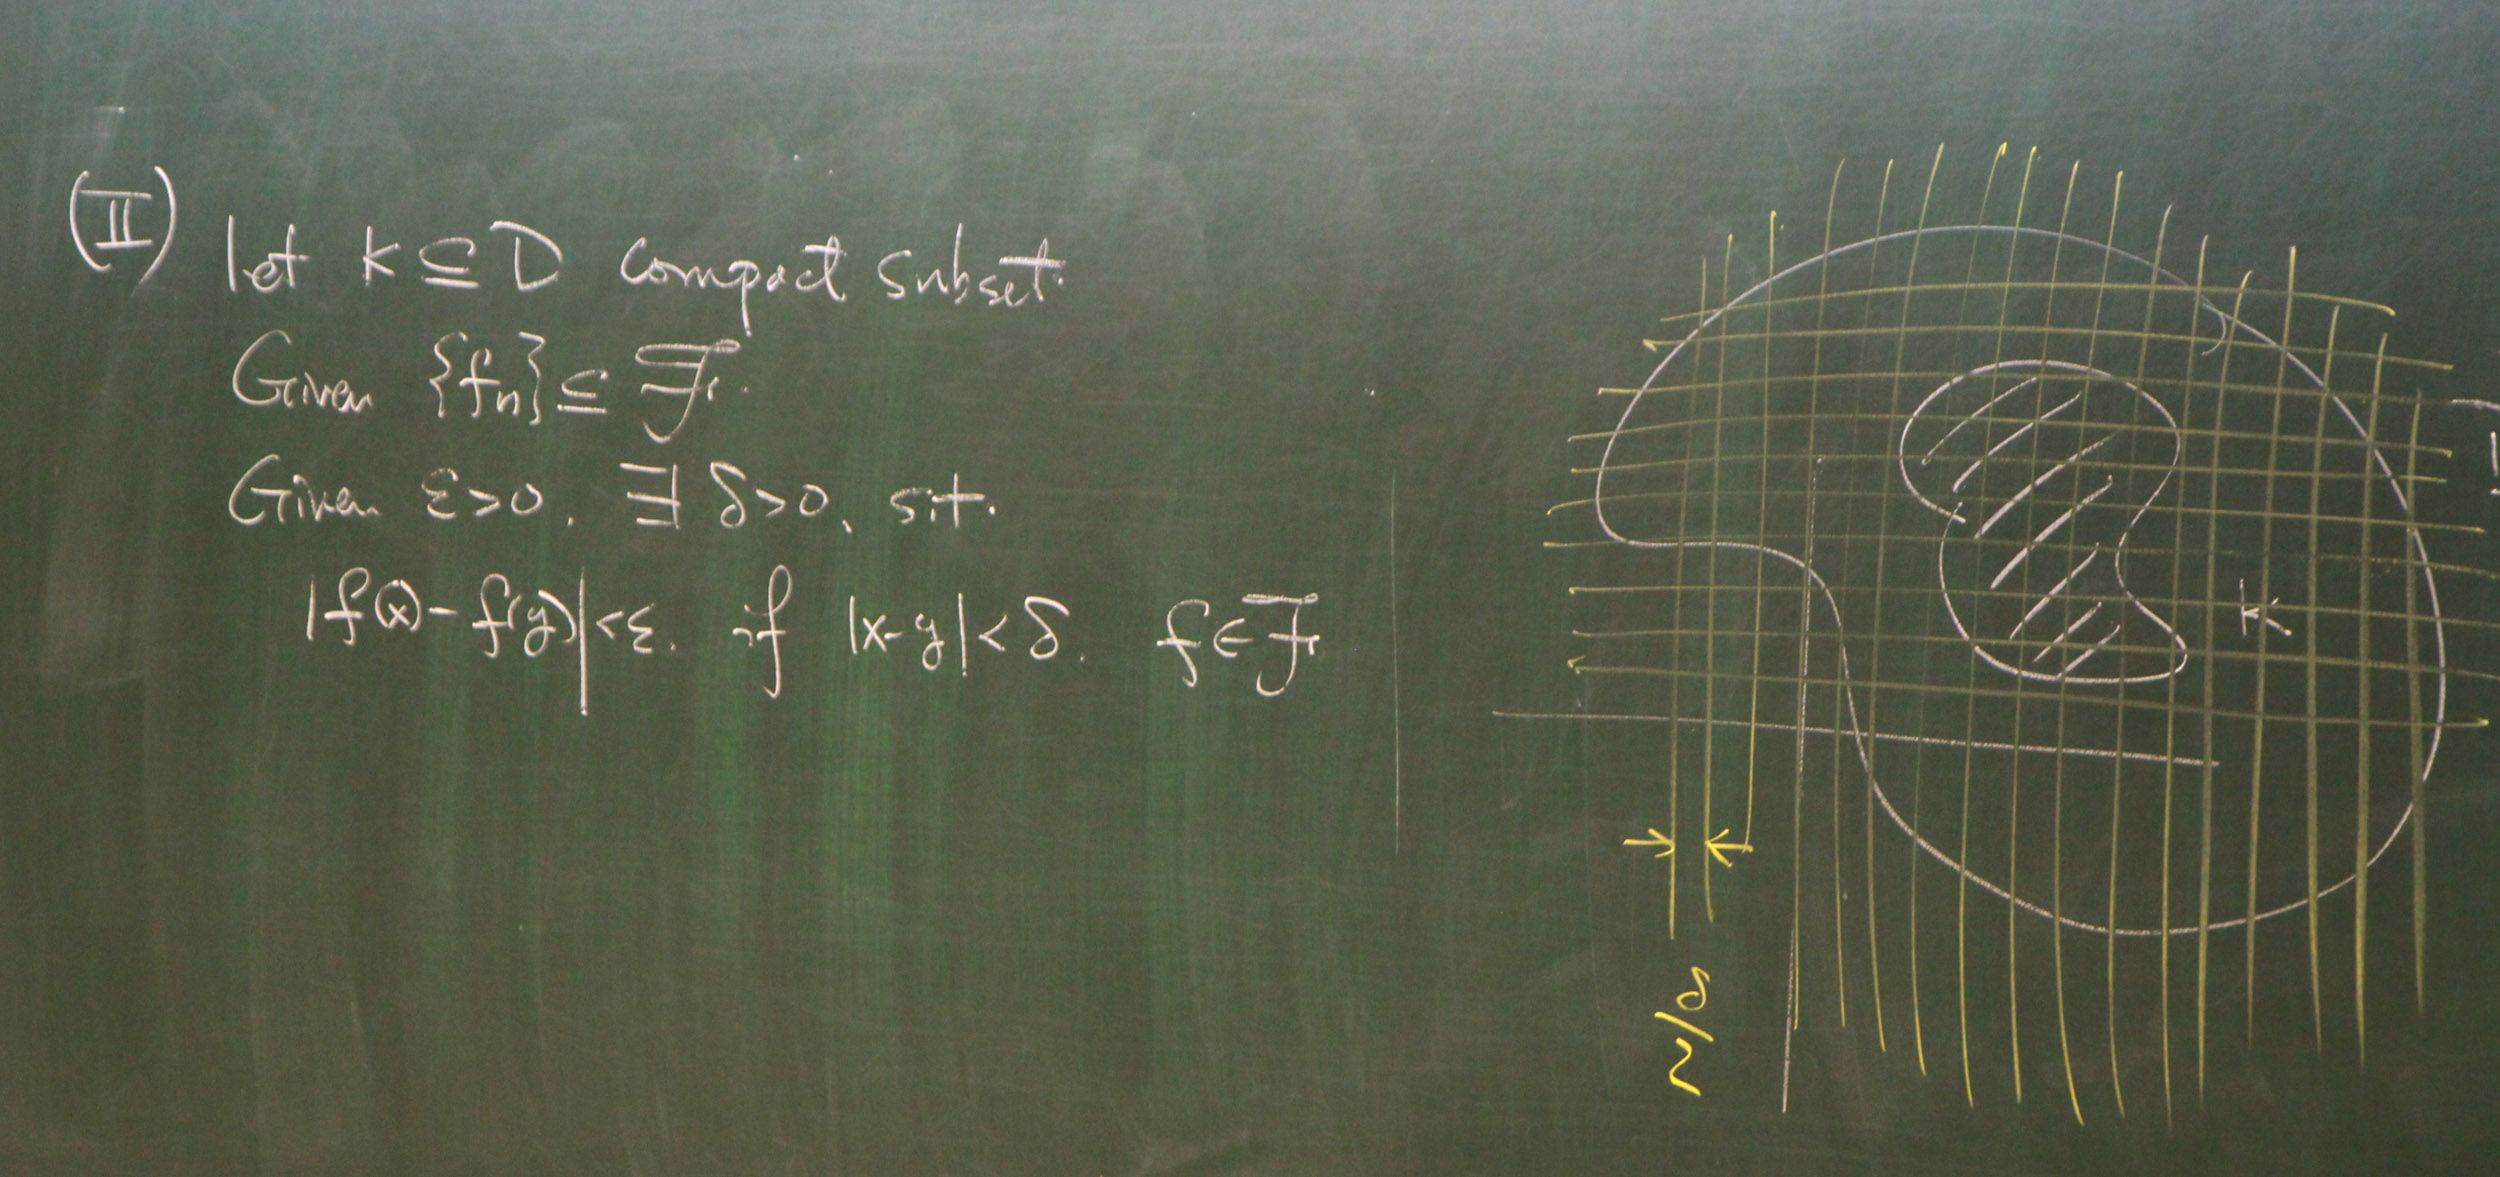 (II) let K ⊆ D compact subset.
Given {fn} ⊆ ℱ.
Given ε>0, ∃ δ>0, s.t.
|f(x)-f(y)|<ε. if |x-y|<δ. f∈ℱ
K
δ/2